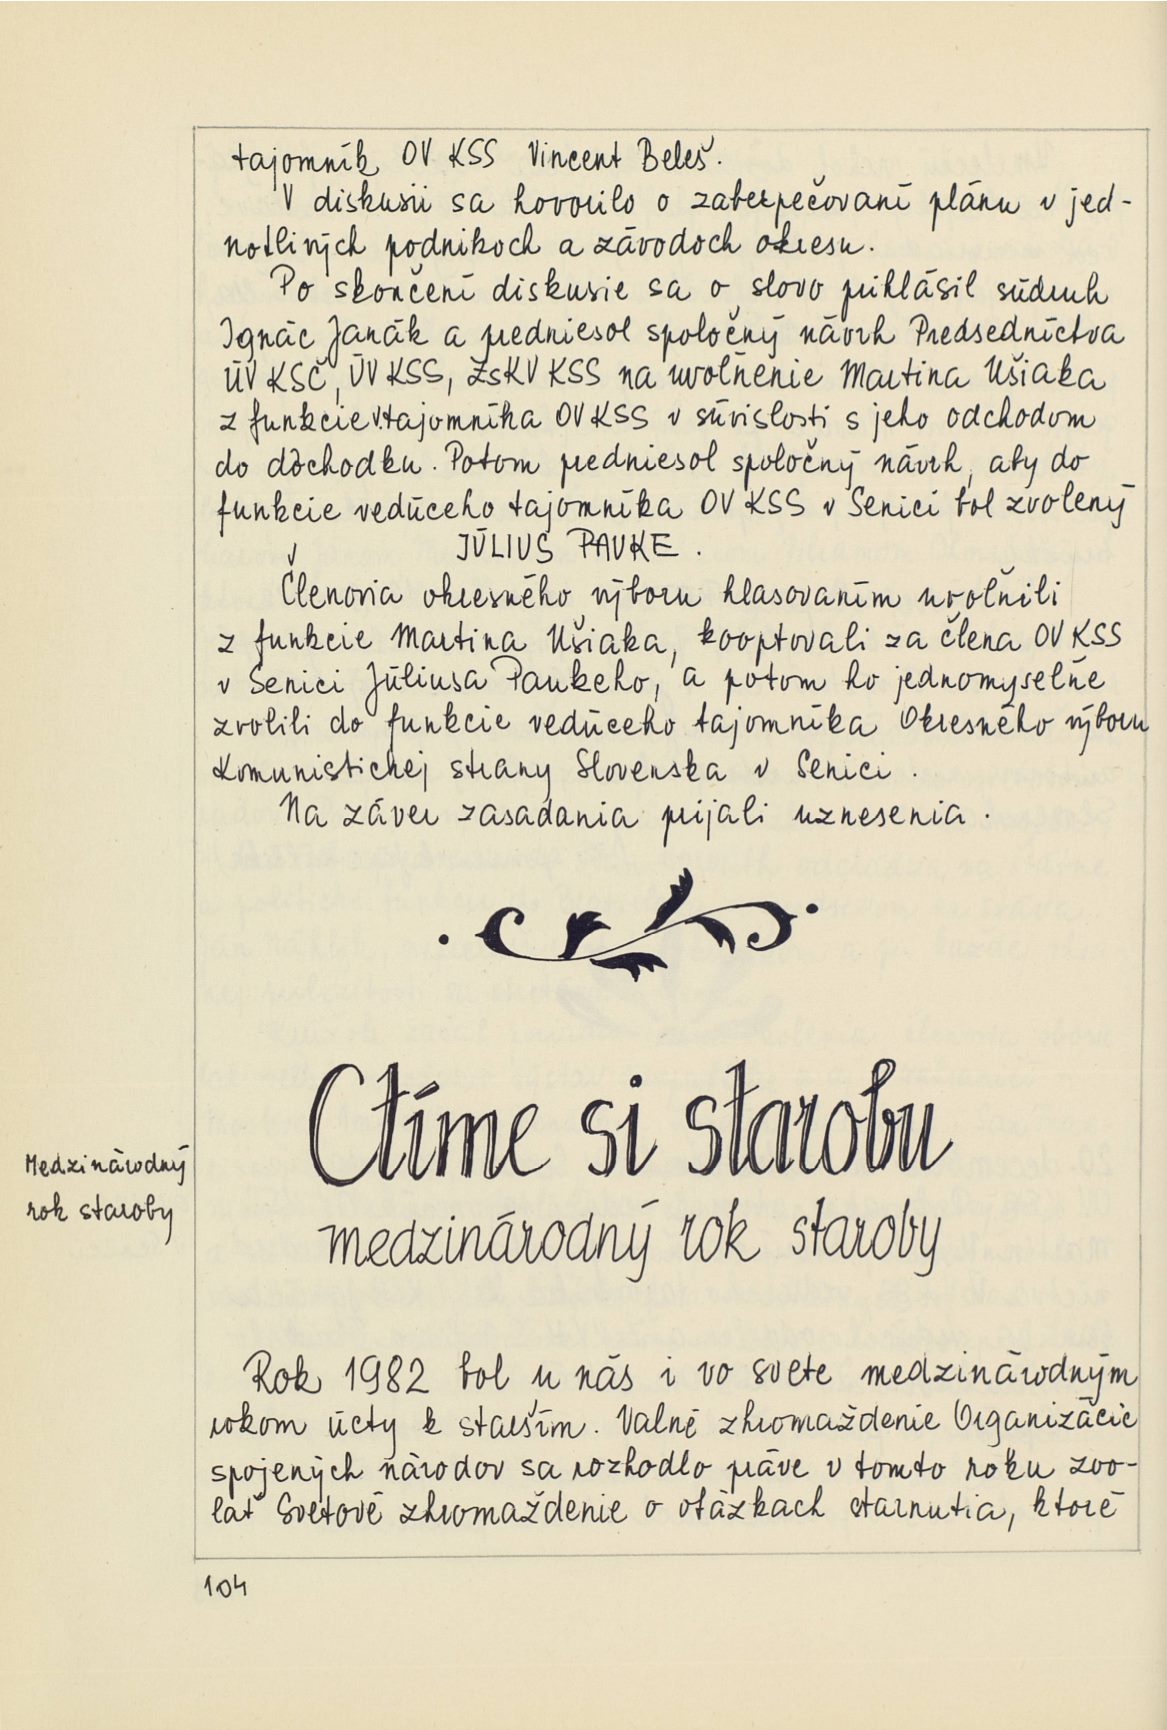 tajomník OV KSS Vincent Beleš.
V diskusii sa hovorilo o zabezpečovaní plánu v jed-
notlivých podnikoch a závodoch okresu.
Po skončení diskusie sa o slovo prihlásil súdruh
Ignác Janák a predniesol spoločný návrh Predsedníctva
ÚV KSČ, ÚV KSS, ZsKV KSS na uvoľnenie Martina Ušiaka
z funkcie v.tajomníka OV KSS v súvislosti s jeho odchodom
do dôchodku. Potom predniesol spoločný návrh, aby do
funkcie vedúceho tajomníka OV KSS v Senici bol zvolený
JÚLIUS PAUKE.
Členovia okresného výboru hlasovaním uvoľnili
z funkcie Martina Ušiaka, kooptovali za člena OV KSS
v Senici Júliusa Paukeho, a potom ho jednomyseľne
zvolili do funkcie vedúceho tajomníka Okresného výboru
Komunistickej strany Slovenska v Senici.
Na záver zasadania prijali uznesenia.
Ctíme si starobu
Medzinárodný
rok staroby
medzinárodný rok staroby
Rok 1982 bol u nás i vo svete medzinárodným
rokom úcty k starším. Valné zhromaždenie Organizácie
spojených národov sa rozhodlo práve v tomto roku zvo-
lať Svetové zhromaždenie o otázkach starnutia, ktoré
104